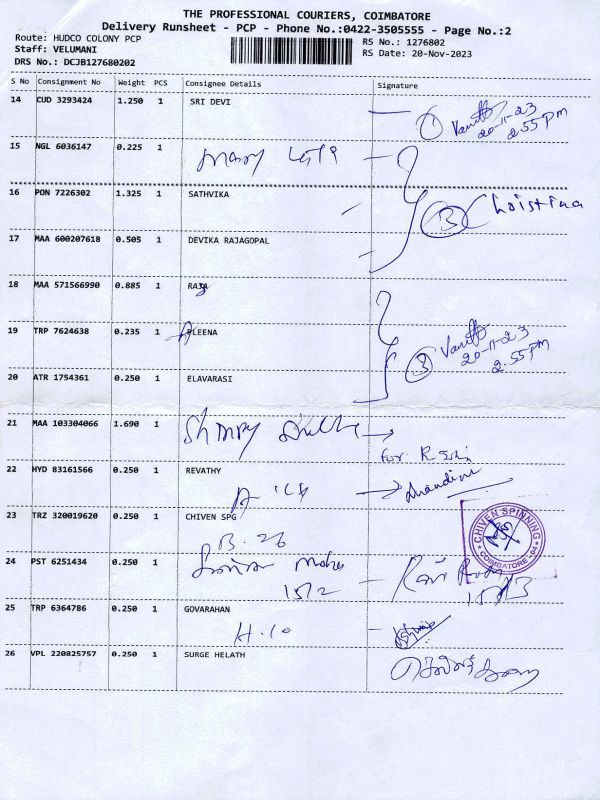 THE PROFESSIONAL COURIERS, COIMBATORE
Delivery Runsheet - PCP - Phone No.:0422-3505555 - Page No.:2
Route: HUDCO COLONY PCP
RS No.: 1276802
Staff: VELUMANI
RS Date: 20-Nov-2023
DRS No.: DCJB127680202
S No Consignment No Weight PCS Consignee Details Signature
14 CUD 3293424 1.250 1 SRI DEVI
1 20-11-23
2.55pm
15 NGL 6036147 0.225 1 Mary
16 PON 7226302 1.325 1 SATHVIKA
3 Christina
17 MAA 600207618 0.505 1 DEVIKA RAJAGOPAL
18 MAA 571566990 0.885 1 RAJA
19 TRP 7624638 0.235 1 ALEENA
3 20-11-23
2.55pm
20 ATR 1754361 0.250 1 ELAVARASI
21 MAA 103304066 1.690 1
for R
22 HYD 83161566 0.250 1 REVATHY
23 TRZ 320019620 0.250 1 CHIVEN SPG
CHIVEN SPINNING
COIMBATORE
B. 26
24 PST 6251434 0.250 1
25 TRP 6364786 0.250 1 GOVARAHAN
H.10
26 VPL 220825757 0.250 1 SURGE HELATH